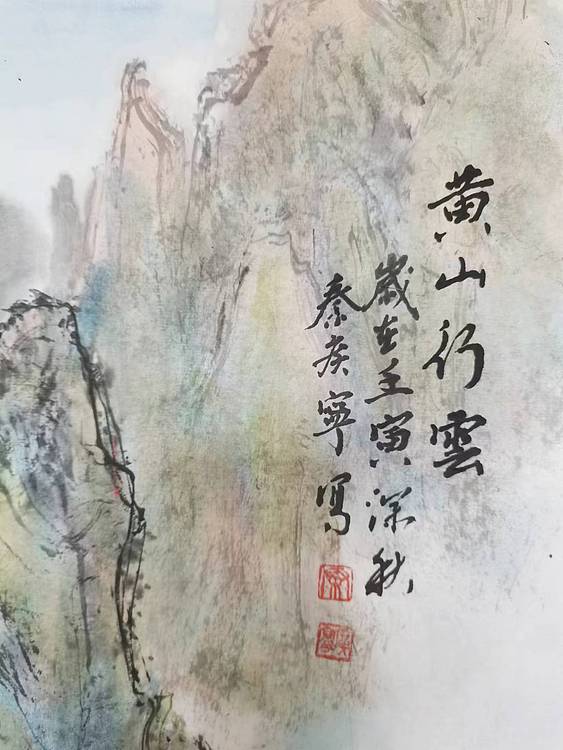 黄山行雲
歲在壬寅深秋
秦侯寧寫